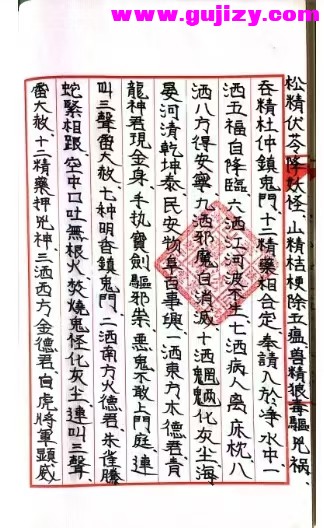 www.gujizy.com
松精伏苓降妖怪、山精桔梗除五瘟、兽精狼毒驅兇禍、
吞精杜仲鎮鬼門、十二精藥相合定、奉請入於淨水中、一
洒五福自降臨、六洒江河波不生、七洒病人离床枕、八
洒八方得安寧、九洒邪魔自消滅、十洒魍魎化灰尘、海
晏河清乾坤泰、民安物阜百事興、一洒東方木德君、青
龍神君現金身、手执寳劍驅邪祟、悪鬼不敢上門庭、連
叫三聲雷大赦、七种明香鎮鬼門、二洒南方火德君、朱雀騰
蛇緊相跟、空中口吐無根火、焚燒鬼怪化灰尘、連叫三聲、
雷大赦、十二精藥押兇神、三洒西方金德君、白虎將軍顕威